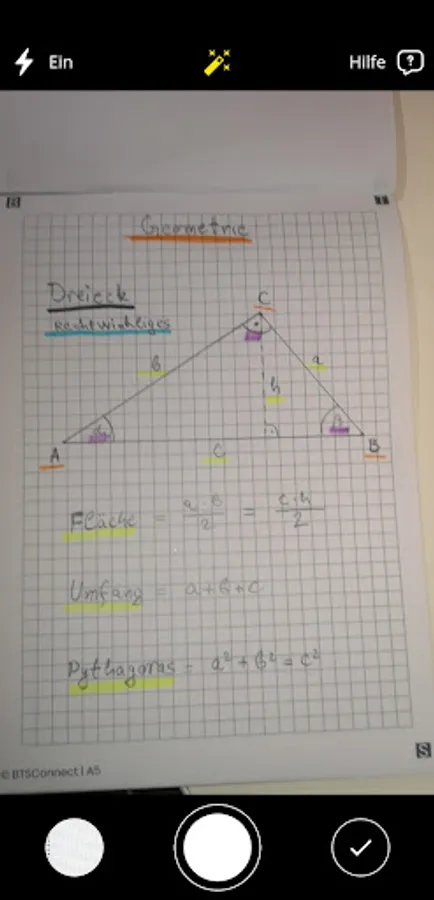 Ein
Hilfe
Geometrie
Dreieck
Rechtwinkliges
C
b
a
h
α
β
A
c
B
Fläche = a·b/2 = c·h/2
Umfang = a+b+c
Pythagoras = a²+b²=c²
S
© BTSConnect | A5